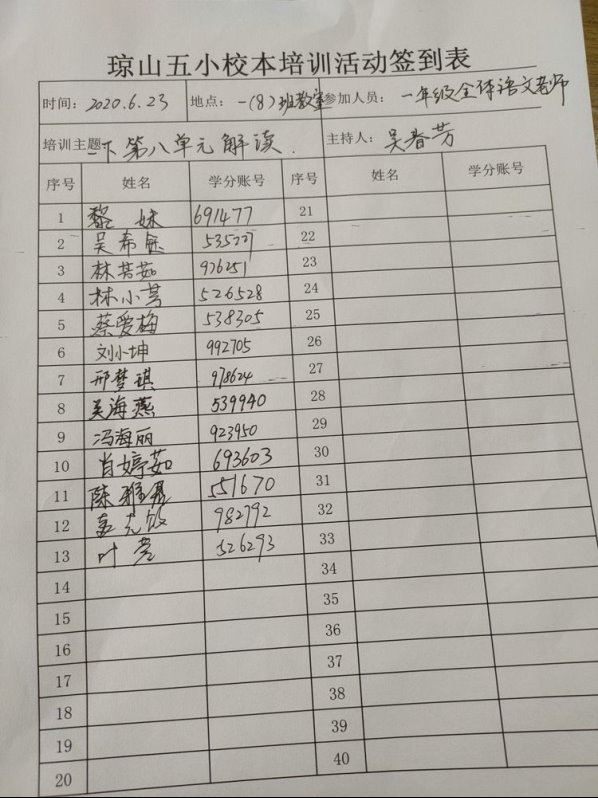 琼山五小校本培训活动签到表
时间：2020.6.23 地点：一(8)班教室 参加人员：一年级全体语文老师
培训主题 一下第八单元解读. 主持人：吴春芳
序号 姓名 学分账号 序号 姓名 学分账号
1 黎妹 691477 21
2 吴希 22
3 林芳茹 976251 23
4 林小芳 526528 24
5 蔡爱梅 538305 25
6 刘小坤 992705 26
7 邢梦琪 978624 27
8 吴海燕 539940 28
9 冯海丽 923950 29
10 肖婷茹 693603 30
11 陈雅 551670 31
12 982792 32
13 叶 526293 33
14 34
15 35
16 36
17 37
18 38
19 39
20 40